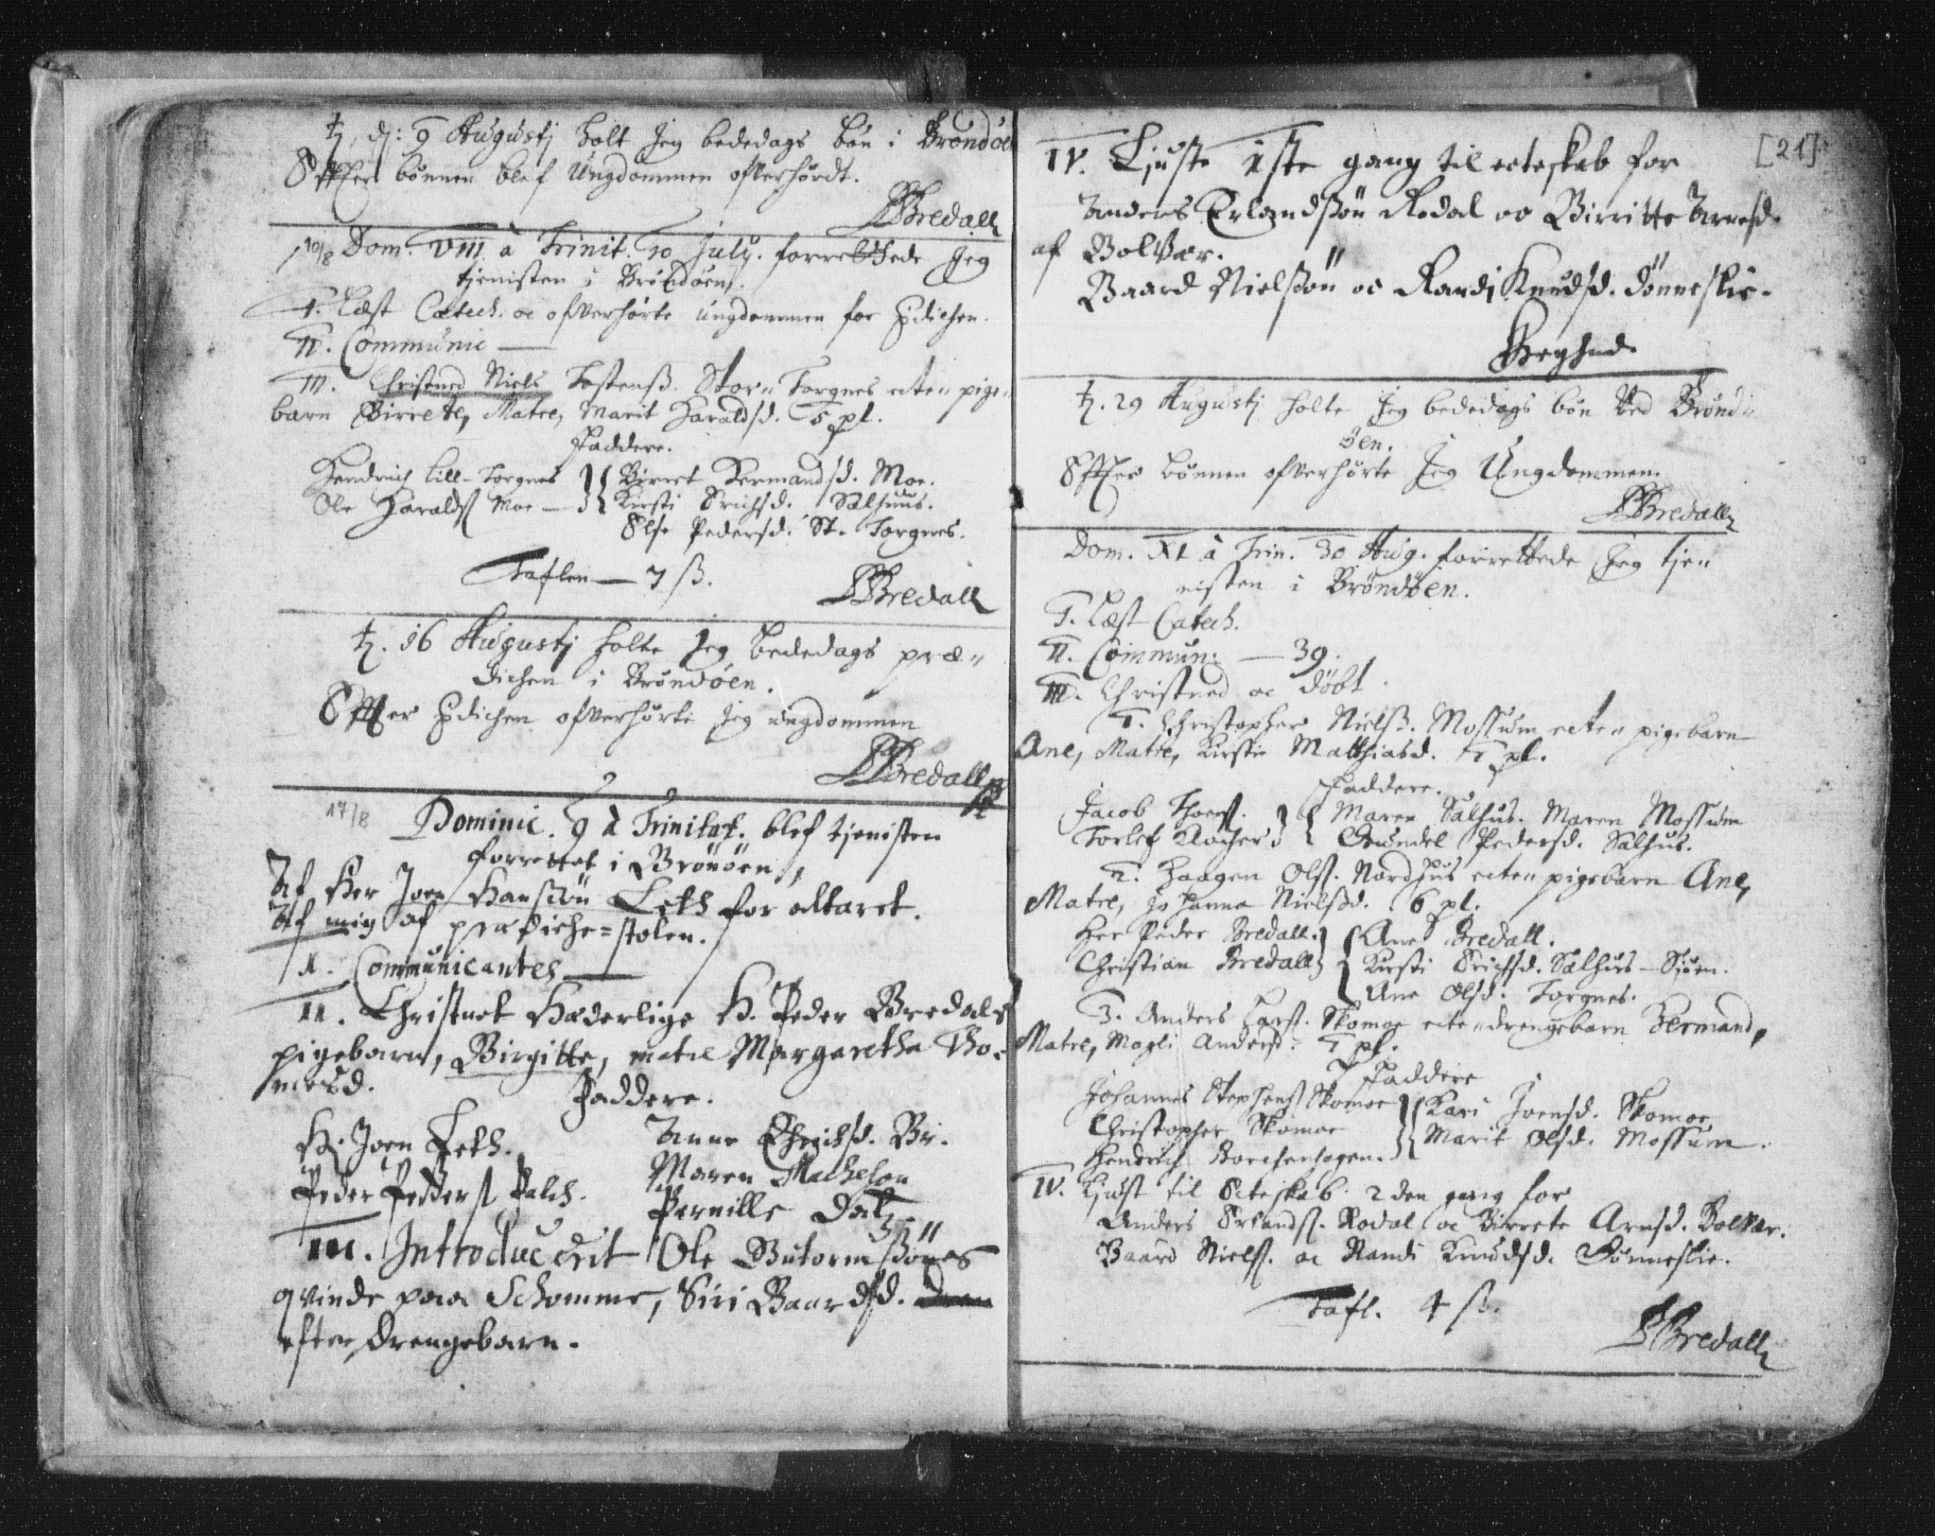 ħ. di: 9 Augustj holt Jeg bededags bön i Bröndöe
Effter bönnen blef Ungdommen ofverhördt.
PBredall
10/8 Dom. VIII à Trinit. 10 July. forrettede Jeg
tjenisten i Bröndöen.
I. Læst Catech. oc ofverhörte ungdommen for Pdichen.
II. Communic —
III. Christned Niels Tostenß. Stor= Torgnes ecte pige=
barn Birrete, Matre, Marit Haraldsd. 5 pl.
Faddere.
Hendrich Lill-Torgnes
Ole Haralds Moe —
Birret Hermandsd. Moe.
Kirsti Erichsd. Salhuus.
Else Pedersd. St. Torgnes.
Taflen — 7 ß.
PBredall
ħ. 16 Augustj holte Jeg bededags præ=
dichen i Bröndöen.
Effter Pdichen ofverhörte Jeg ungdommen
PBredall
17/8
Dominic. 9 à Trinitat. blef tjenisten
forrettet i Brönöen,
Af Her Joen Hanssön Leth for altaret.
Af mig af prædiche=stolen.
I. Communicantes —
II. Christnet Hæderlige H. Peder Bredals
pigebarn, Birgitte, matre Margaretha Tho=
mesd.
Faddere.
H. Joen Leth.
Peder Peders Falch.
Anne Erichsd. Br.
Maren Machelson
Pernille Dal
III. Introducerit Ole Gutormssönes
qvinde paa Schomme, Siri Baardsd.
efter drengebarn.
[21]
IV. Liuste 1ste gang til ecteskab for
Anders Erlandssön Rodal oc Birritte Arnesd.
af Bolvær.
Baard Nielssön oc Randj Knudsd. Sönneslie.
ħ. 29 Augustj holte Jeg bededags bön ved Brönd=
öen.
Effter bönnen ofverhörte Jeg Ungdommen.
PBredall
Dom. XI à Trin. 30 Aug. forrettede Jeg tje=
nisten i Bröndöen.
I. Læst Catech.
II. Commun: — 39.
III. Christned oc döbt.
1. Christopher Nielß. Mossum ecte pigebarn
Ane, Matre, Kirstie Matthiasd. 1 pl.
Faddere.
Jacob Thoers.
Torlef Klocher
Maren Salhus. Maren Mossum
Gundel Pedersd. Salhus.
2. Haagen Ols. Nordhus ecte pigebarn Ane,
Matre, Johanna Nielsd. 6 pl.
Her Peder Bredall.
Christian Bredall
Ane Bredall.
Kirsti Erichsd. Salhus - Siöen.
Ane Olsd. Torgnes.
3. Anders Lars. Skomoe ecte drengebarn Hermand,
Matre, Magli Andersd. 1 pl.
Faddere
Johannes Stephens Skomoe
Christopher Skomoe
Hendrich Borchenhagen.
Kari Joensd. Skomoe
Marit Olsd. Mossum.
IV. Liust til Ecteskab 2den gang for
Anders Erlands. Rodal oc Birrete Arnsd. Bolvær.
Baard Niels. oc Randi Knudsd. Sönneslie.
Tafl. 4 ß.
PBredall